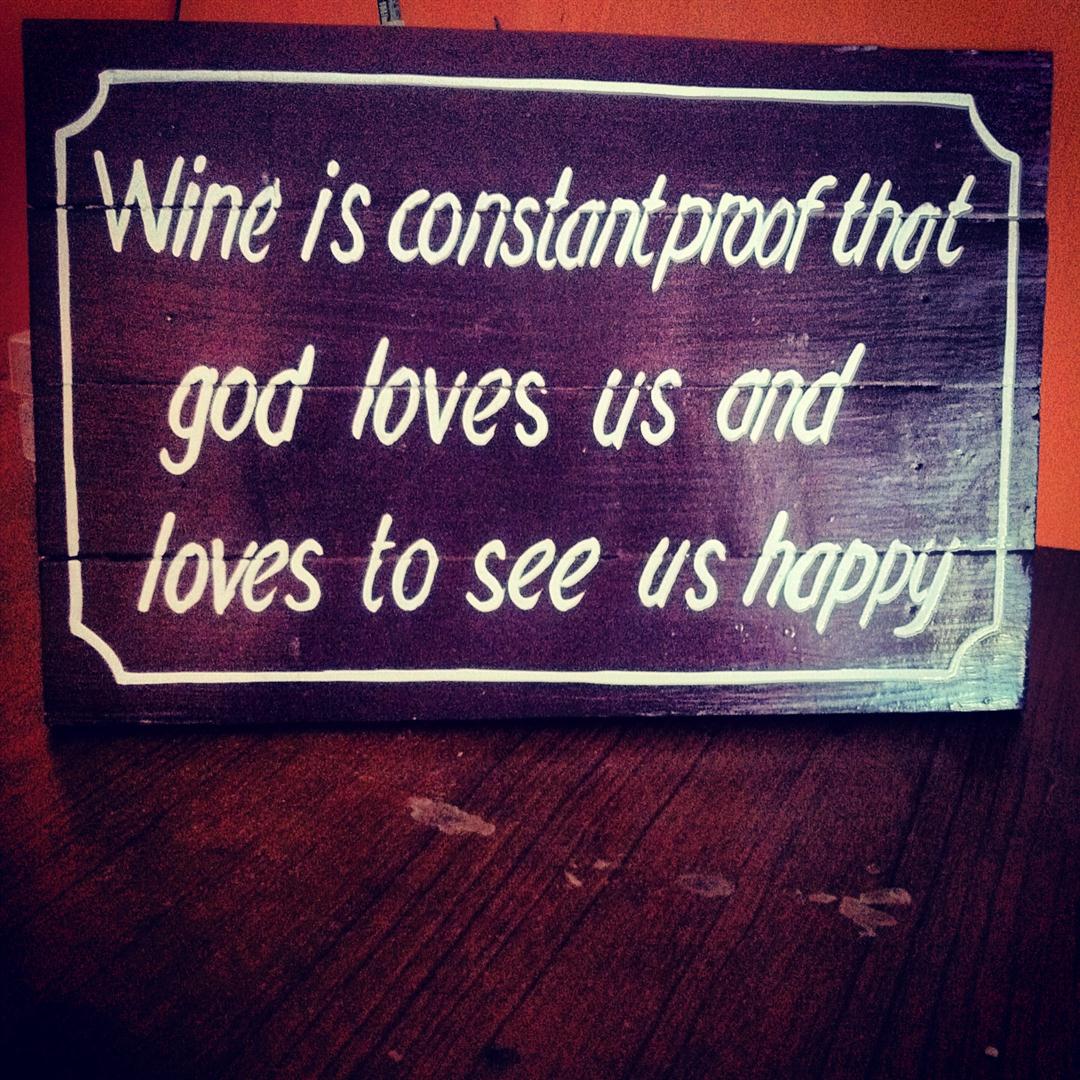 Wine is constant proof that
god loves us and
loves to see us happy